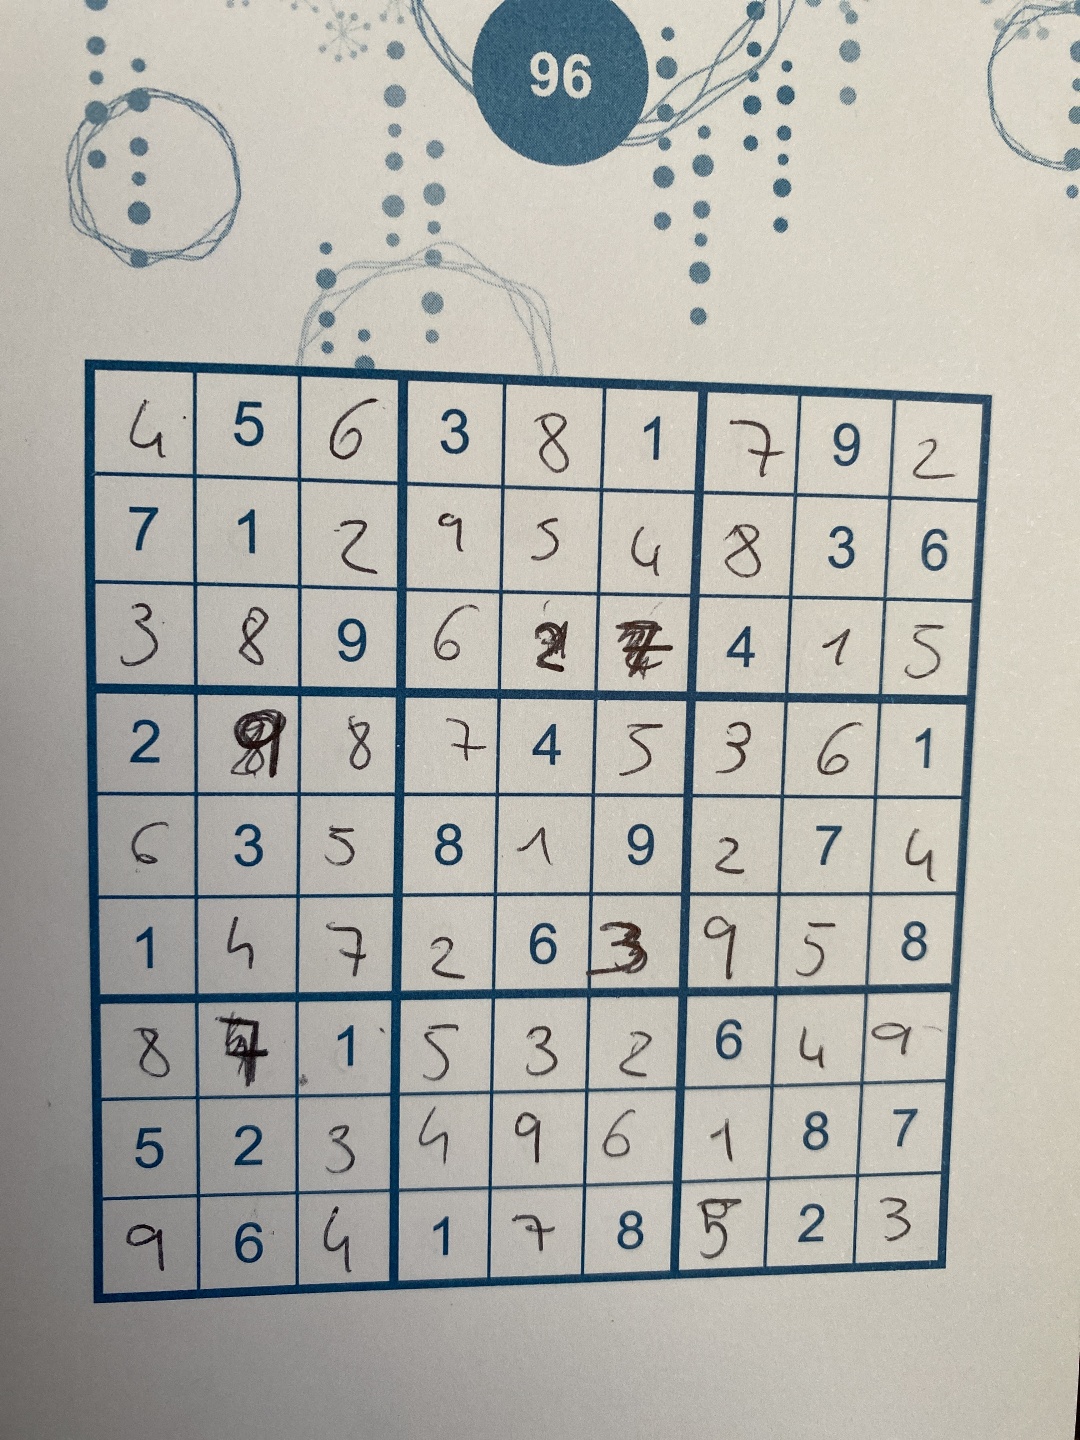 96
4 5 6 3 8 1 7 9 2
7 1 2 9 5 4 8 3 6
3 8 9 6 2 7 4 1 5
2 9 8 7 4 5 3 6 1
6 3 5 8 1 9 2 7 4
1 4 7 2 6 3 9 5 8
8 7 1 5 3 2 6 4 9
5 2 3 4 9 6 1 8 7
9 6 4 1 7 8 5 2 3